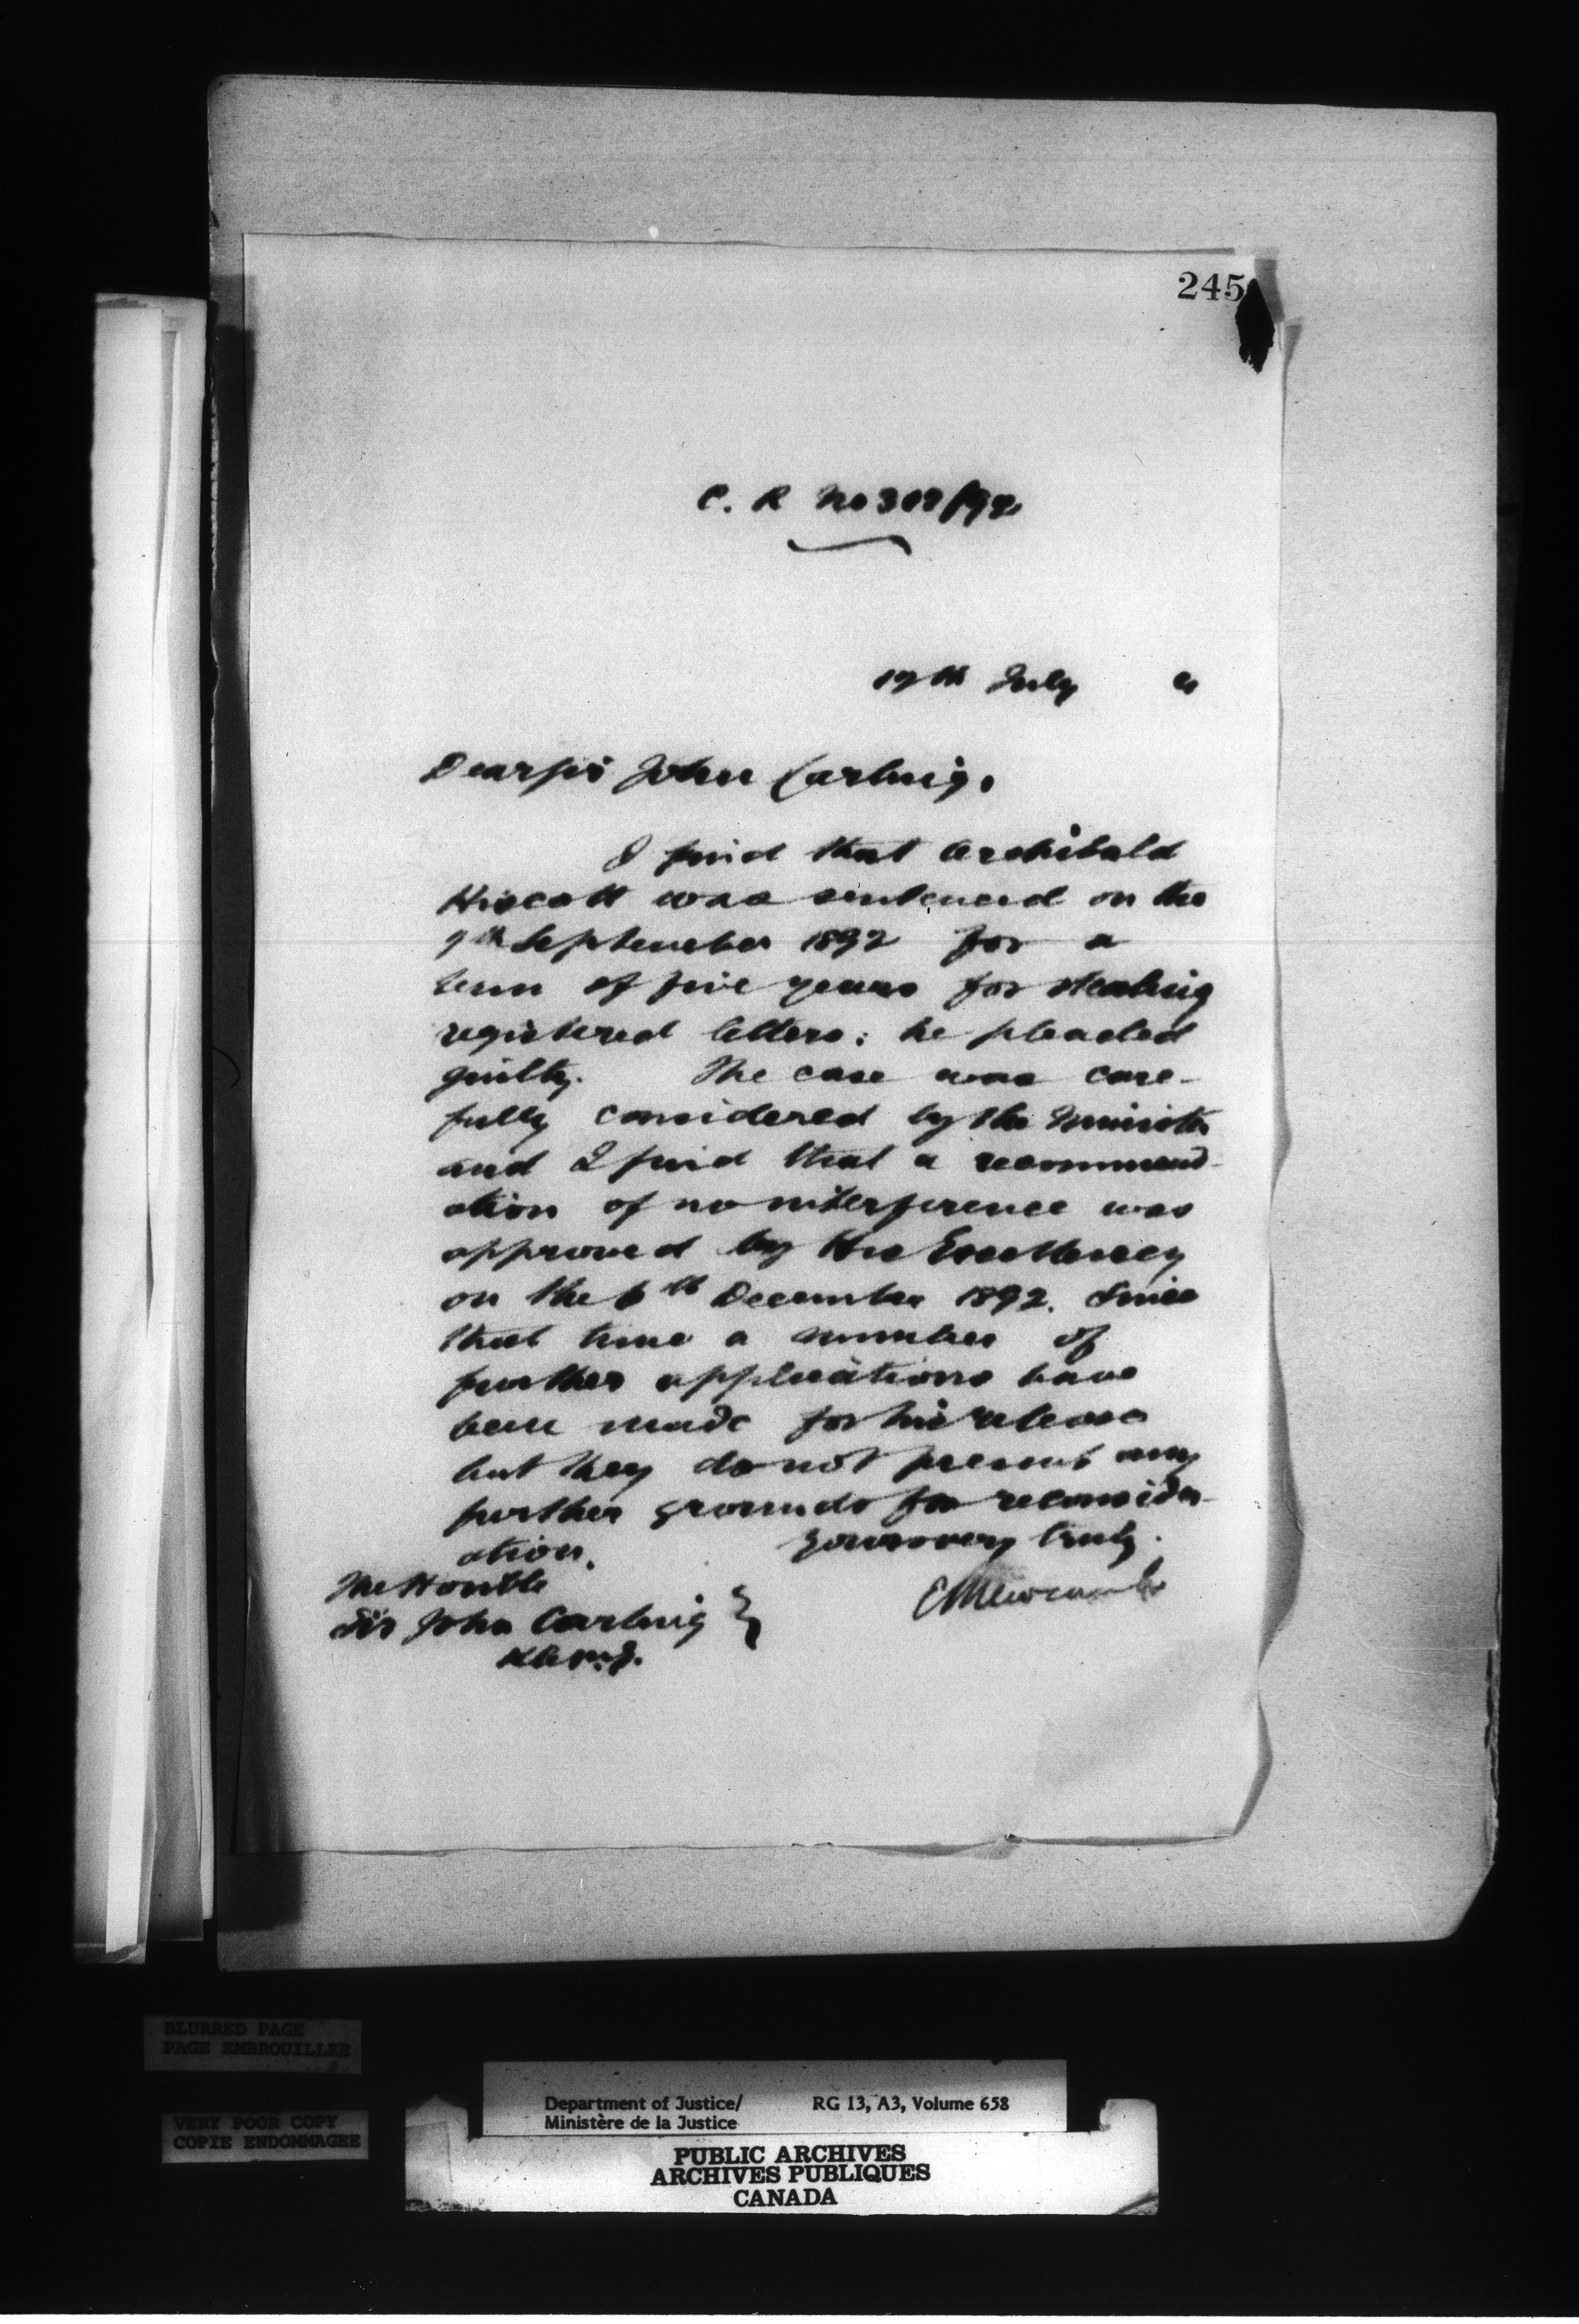 245
C. R No 302/92
17th July 4
Dear Sir John Carling,
I find that Archibald
Hiscott was sentenced on the
9th September 1892 for a
term of five years for stealing
registered letters: he pleaded
guilty. The case was care-
fully considered by the Minister
and I find that a recommend-
ation of no interference was
approved by His Excellency
on the 6th December 1892. Since
that time a number of
further applications have
been made for his release
but they do not present any
further grounds for reconsider-
ation. Yours very truly.
The Honble
Sir John Carling }
K.C.M.G.
E L Newcombe
BLURRED PAGE
PAGE EMBROUILLEE
VERY POOR COPY
COPIE ENDOMMAGEE
Department of Justice/ RG 13, A3, Volume 658
Ministère de la Justice
PUBLIC ARCHIVES
ARCHIVES PUBLIQUES
CANADA